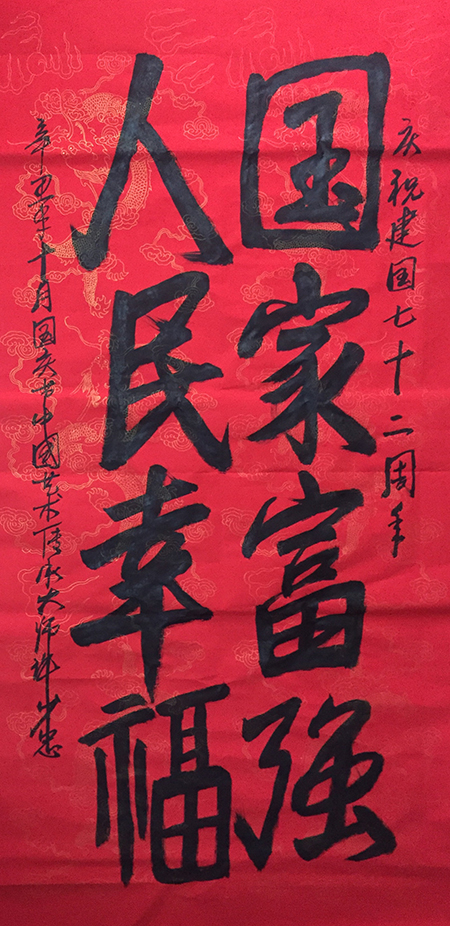 庆祝建国七十二周年
国家富强
人民幸福
辛丑年十月国庆节中國艺术传承大师